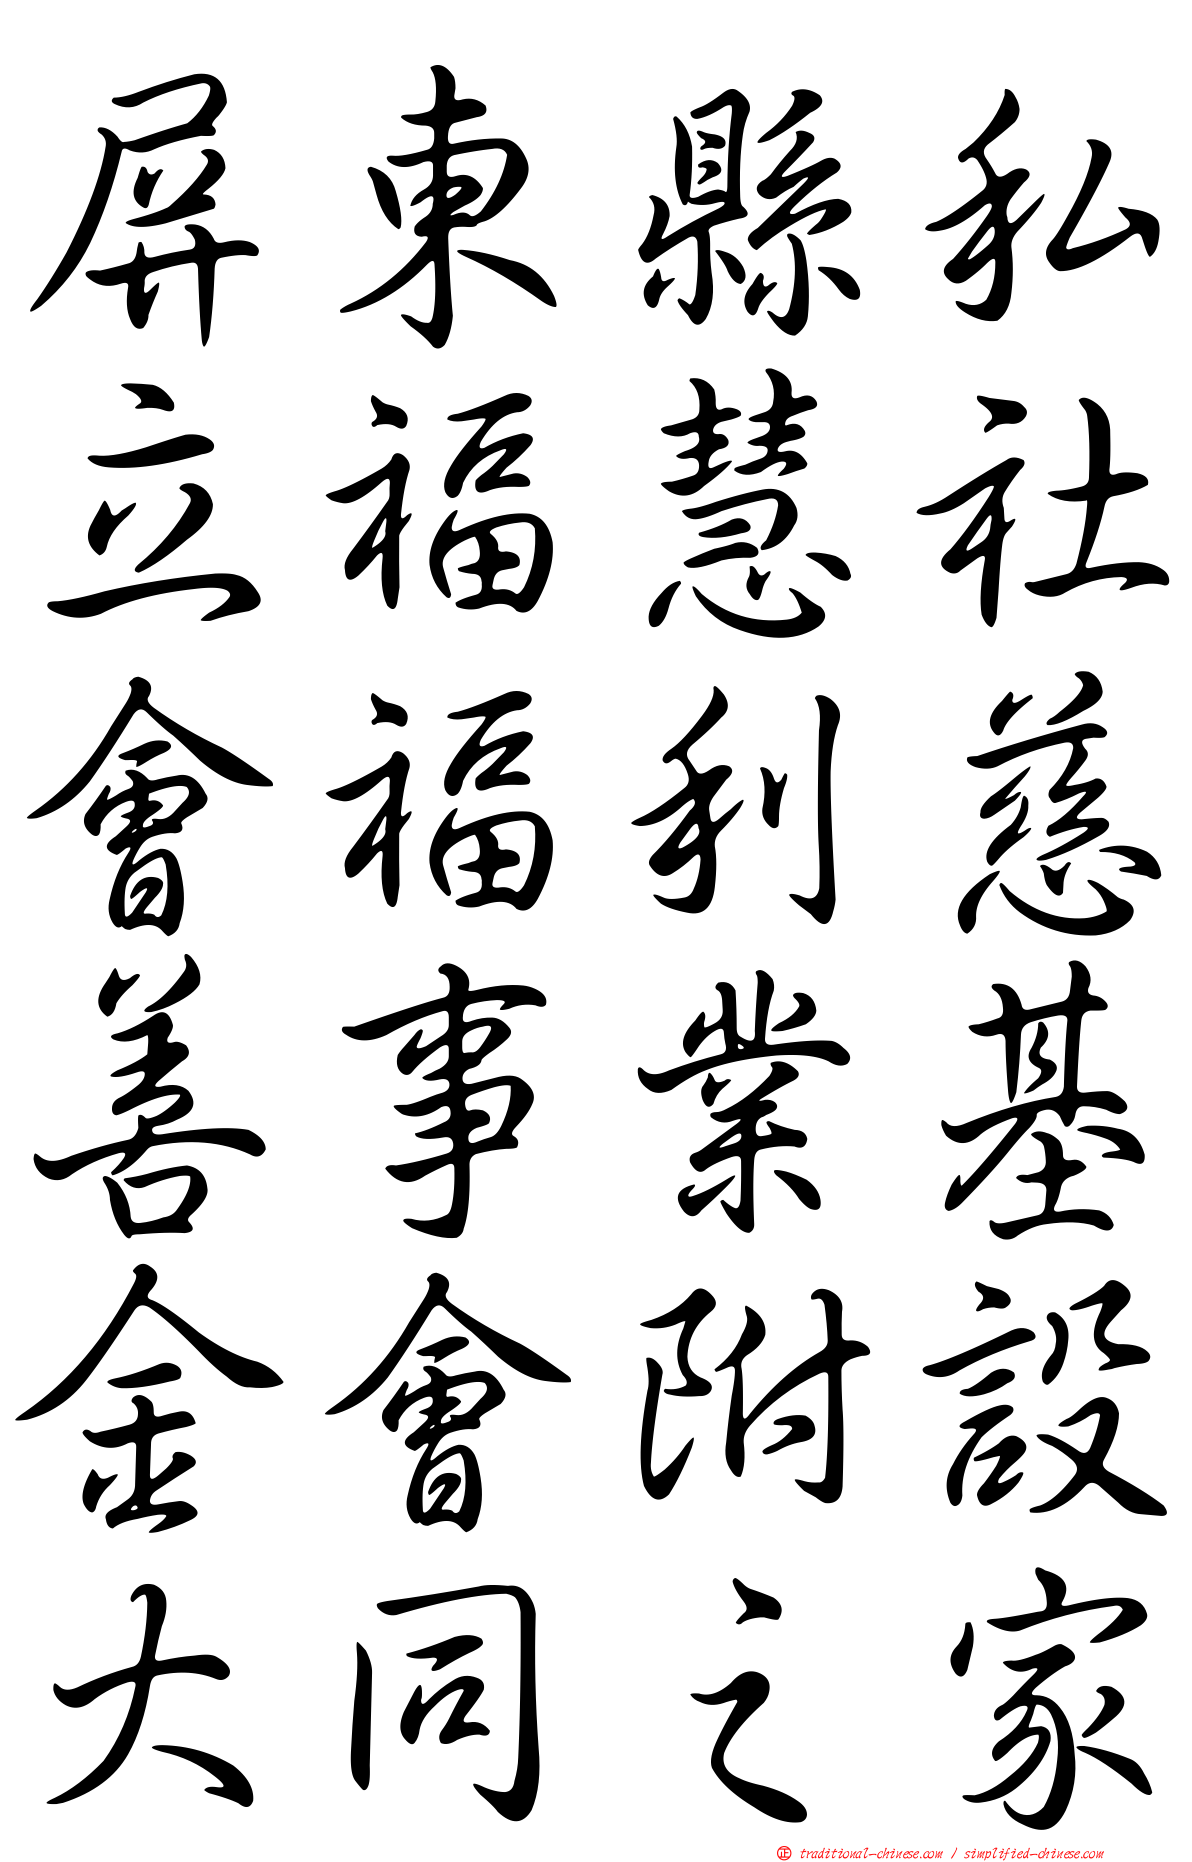 屏東縣私
立福慧社
會福利慈
善事業基
金會附設
大同之家
正 traditional-chinese.com / simplified-chinese.com